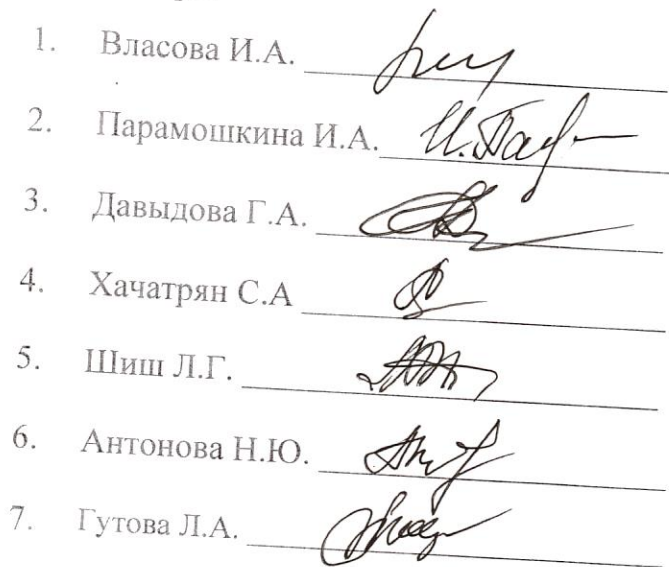 1. Власова И.А.
2. Парамошкина И.А.
3. Давыдова Г.А.
4. Хачатрян С.А
5. Шиш Л.Г.
6. Антонова Н.Ю.
7. Гутова Л.А.